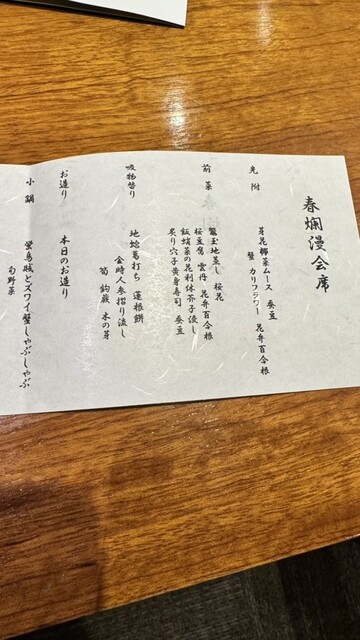 春爛漫会席
先附
芽花椰菜ムース 蚕豆
蟹 カリフラワー 花弁百合根
前菜
鼈玉地蒸し 桜花
桜豆腐 雲丹 花弁百合根
飯蛸菜の花利休芥子浸し
炙り穴子黄身寿司 蚕豆
吸物替り
地蛤葛打ち 蓮根餅
金時人参摺り流し
筍 鈎蕨 木の芽
お造り
本日のお造り
小鍋
蛍烏賊とズワイ蟹しゃぶしゃぶ
旬野菜